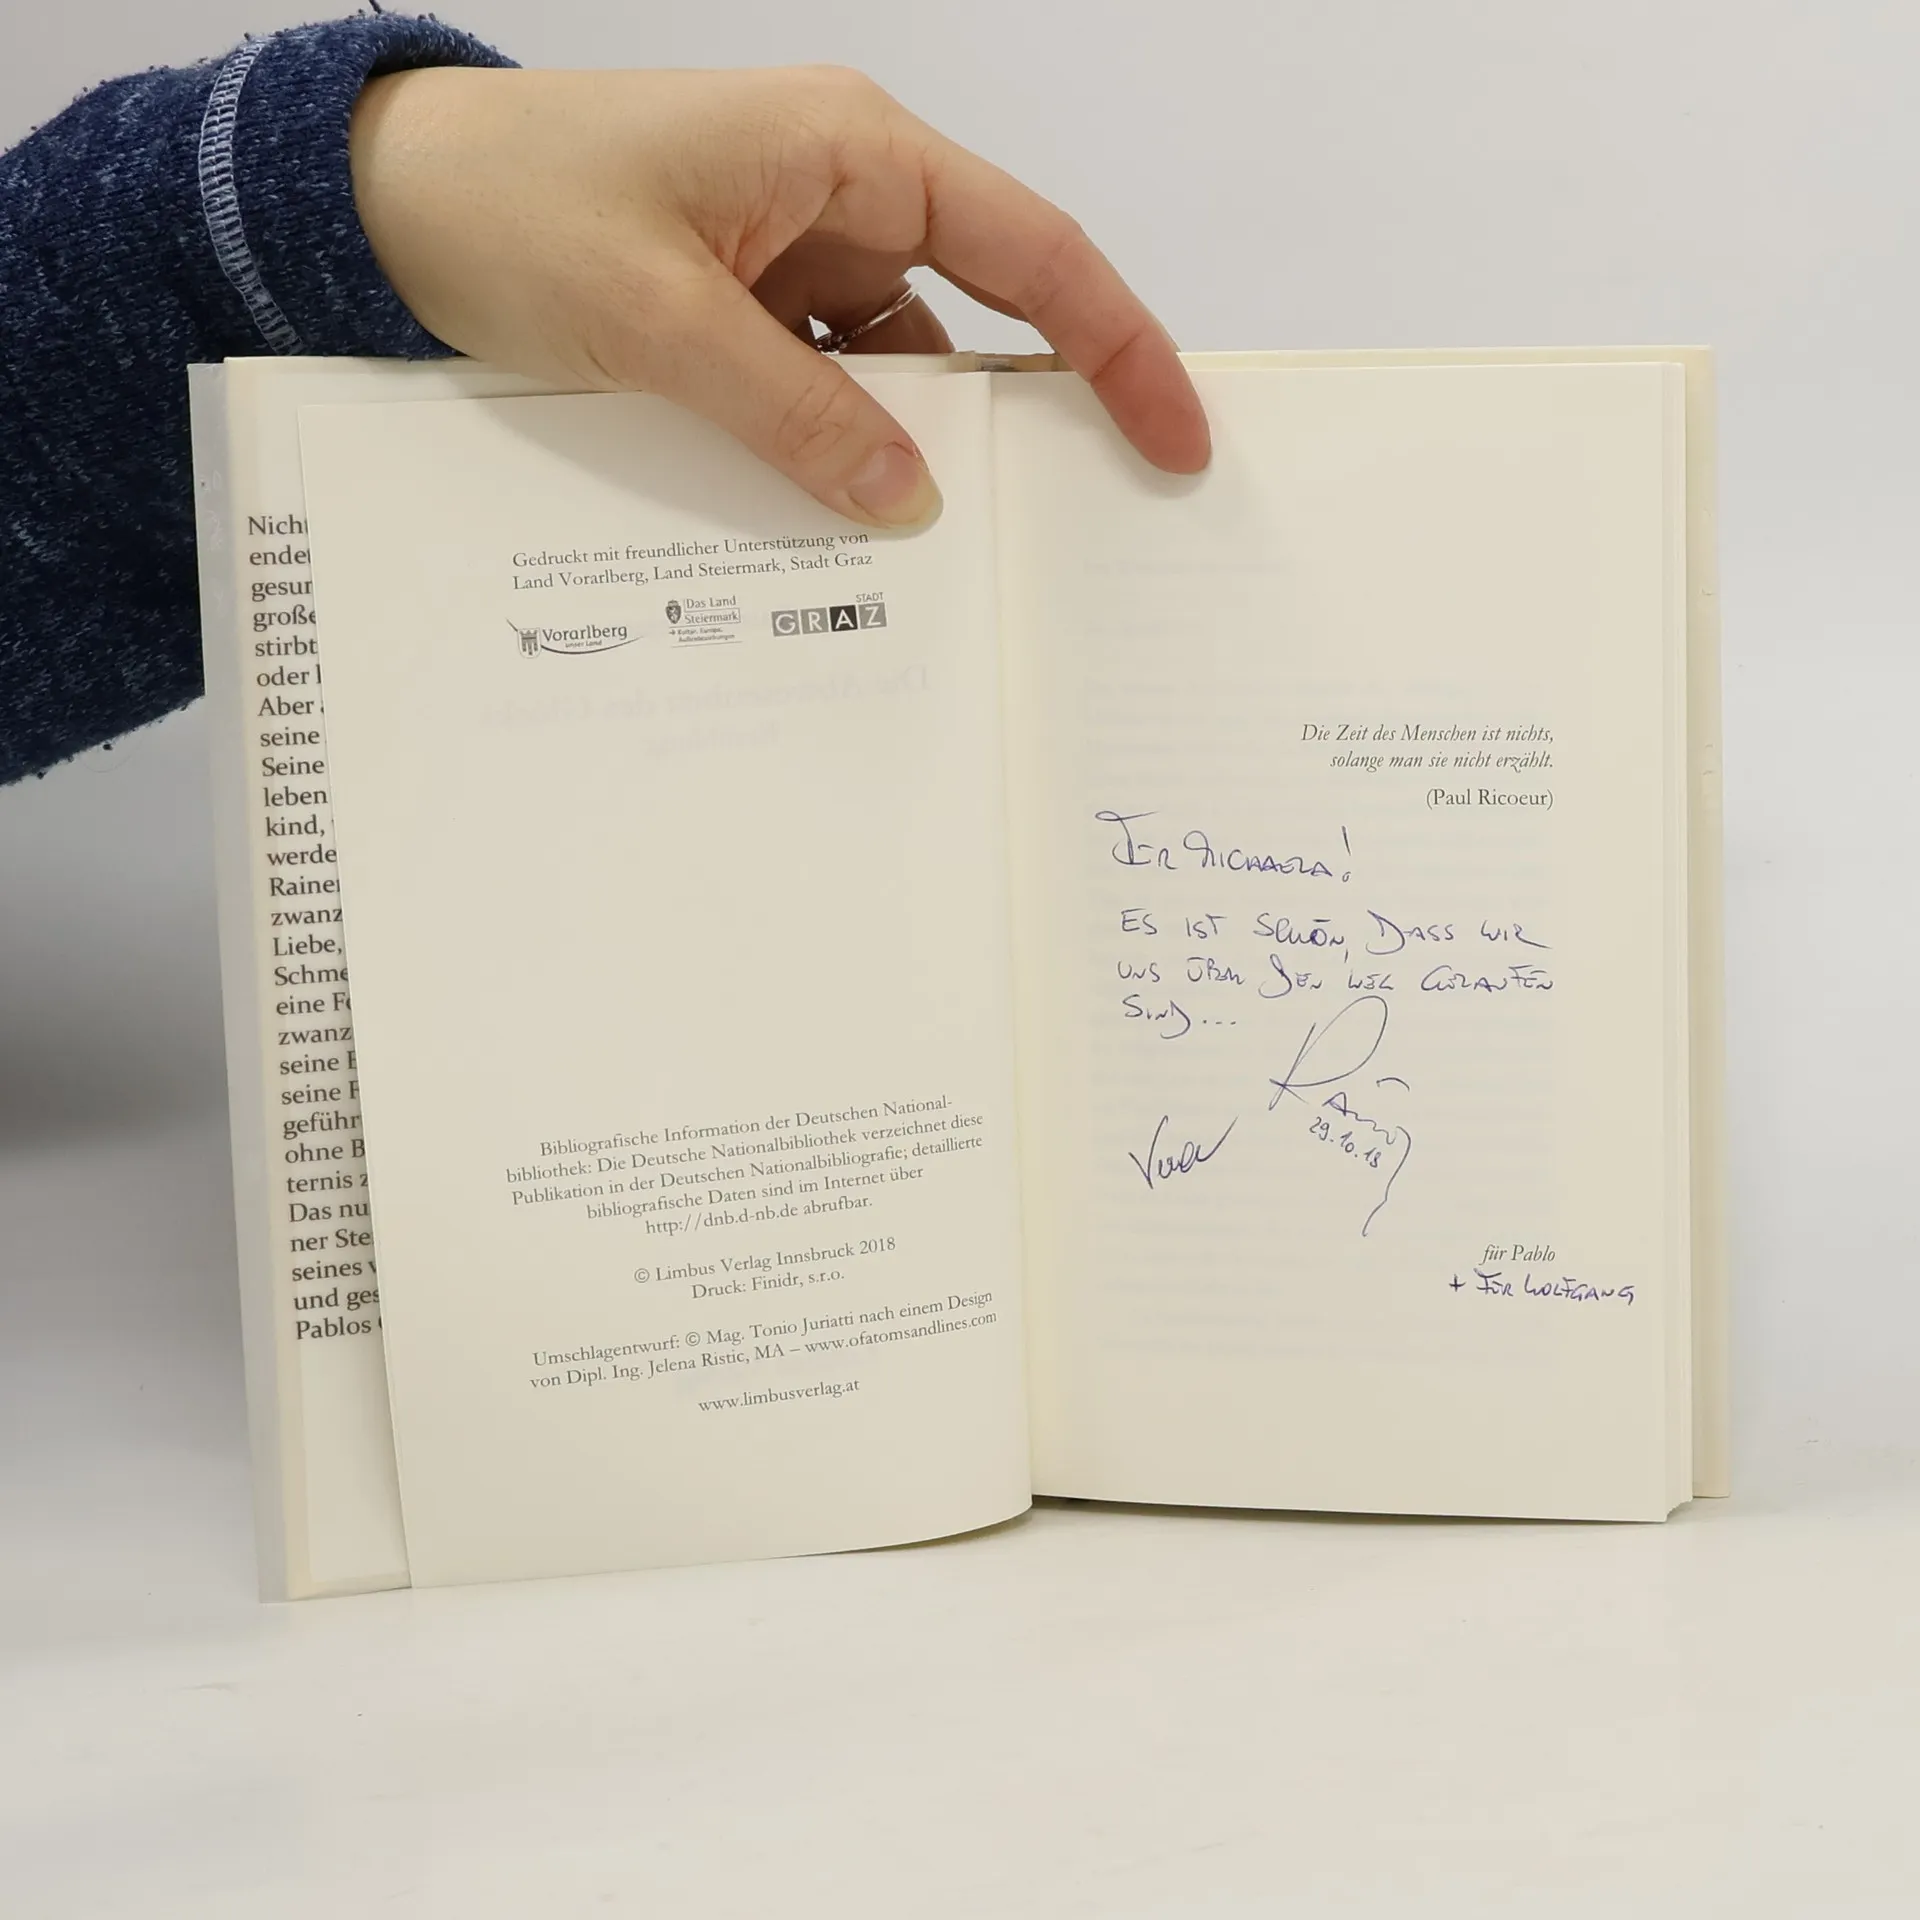 Nich
ende
gesun
große
stirbt
oder
Aber
seine
Seine
leben
kind,
werde
Raine
zwanz
Liebe,
Schme
eine F
zwanz
seine
seine F
geführ
ohne B
ternis z
Das nu
ner Ste
seines
und ges
Pablos
Gedruckt mit freundlicher Unterstützung von
Land Vorarlberg, Land Steiermark, Stadt Graz
Vorarlberg
unser Land
Das Land
Steiermark
→ Kultur, Europa,
Außenbeziehungen
STADT
GRAZ
Bibliografische Information der Deutschen National-
bibliothek: Die Deutsche Nationalbibliothek verzeichnet diese
Publikation in der Deutschen Nationalbibliografie; detaillierte
bibliografische Daten sind im Internet über
http://dnb.d-nb.de abrufbar.
© Limbus Verlag Innsbruck 2018
Druck: Finidr, s.r.o.
Umschlagentwurf: © Mag. Tonio Juriatti nach einem Design
von Dipl. Ing. Jelena Ristic, MA – www.ofatomsandlines.com
www.limbusverlag.at
Die Zeit des Menschen ist nichts,
solange man sie nicht erzählt.
(Paul Ricoeur)
FÜR MICHAELA!
ES IST SCHÖN, DASS WIR
UNS ÜBER DEN WEG GELAUFEN
SIND...
29.10.18
für Pablo
+ FÜR WOLFGANG